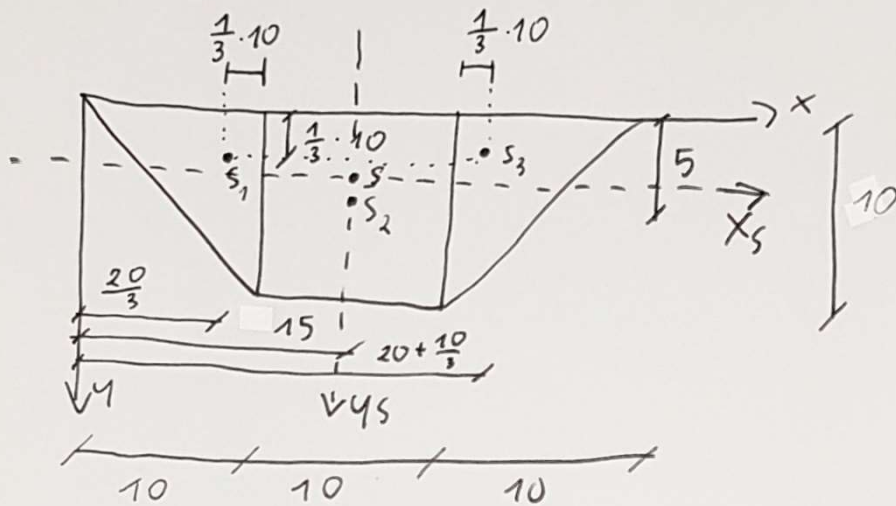 1/3 · 10
1/3 · 10
x
1/3 · 10
S₁
S
S₃
5
10
S₂
Xs
20/3
15
20 + 10/3
y
ys
10
10
10